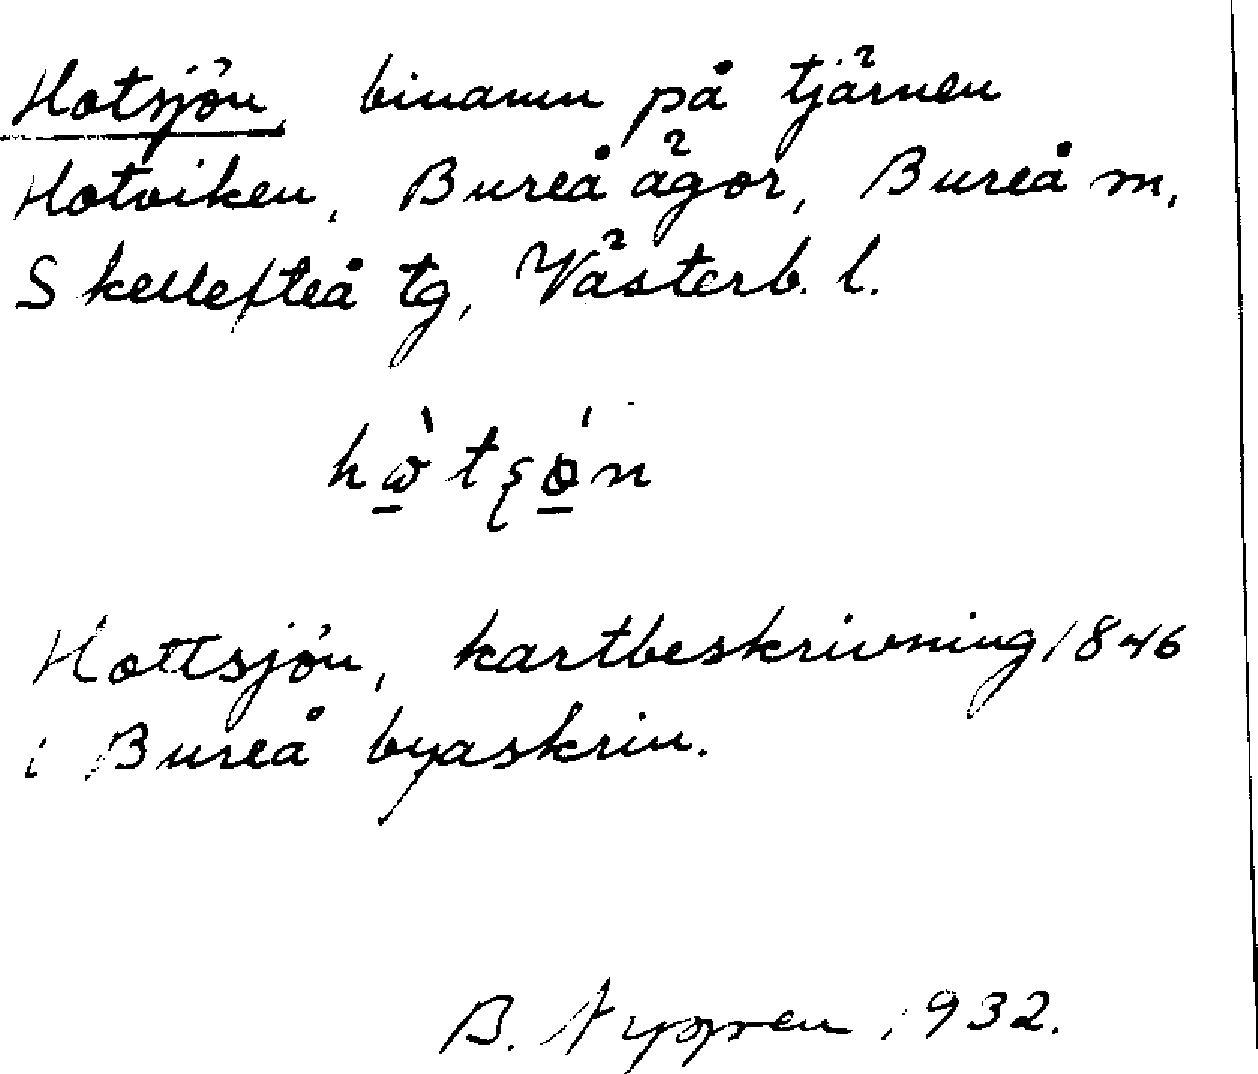 Hotsjön, binamn på tjärnen
Hotviken, Bureå ägor, Bureå m,
Skellefteå tg, Västerb. l.
Hottsjön, kartbeskrivning 1846
i Bureå byaskrin.
B. 1932.